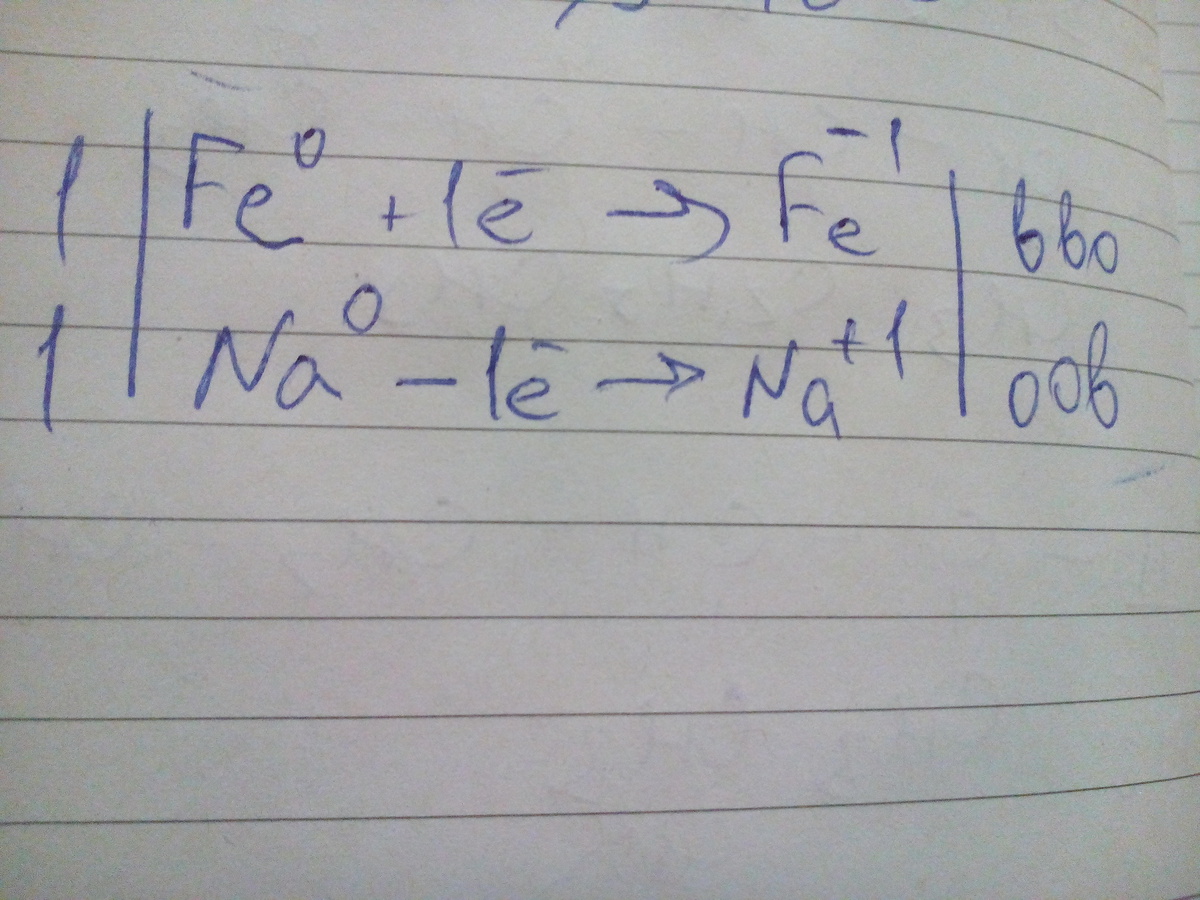 1 | Fe⁰ + 1ē → Fe⁻¹ | вво
1 | Na⁰ − 1ē → Na⁺¹ | оов